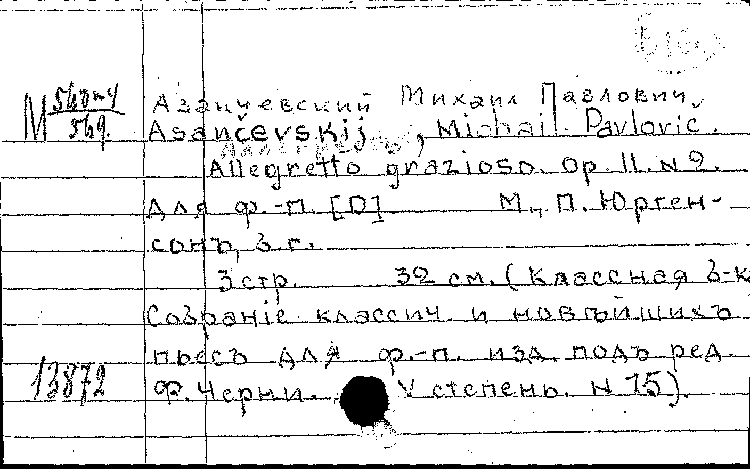 Азанчевский Михаил Павлович,
M 5402-4/549. Asančevskij, Michail Pavlovic.
Allegretto grazioso. Op. 11. N 2.
Для ф.-п. [D] М., П. Юрген-
сонъ, б. г.
3 стр. 32 см. (Классная б-к
Собраніе классич. и новѣйшихъ
пьесъ для ф.-п. изд. подъ ред.
13872 Ф. Черни. V степень. N 15).